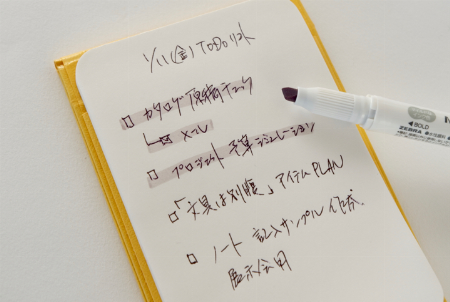 1/11(金)TODOリスト
□ カタログ原稿チェック
└□ メール
□ プロジェクト予算シミュレーション
□「文具は別腹」アイテムPLAN
□ ノート記入サンプル作成
展示会用
◀BOLD
ZEBRA